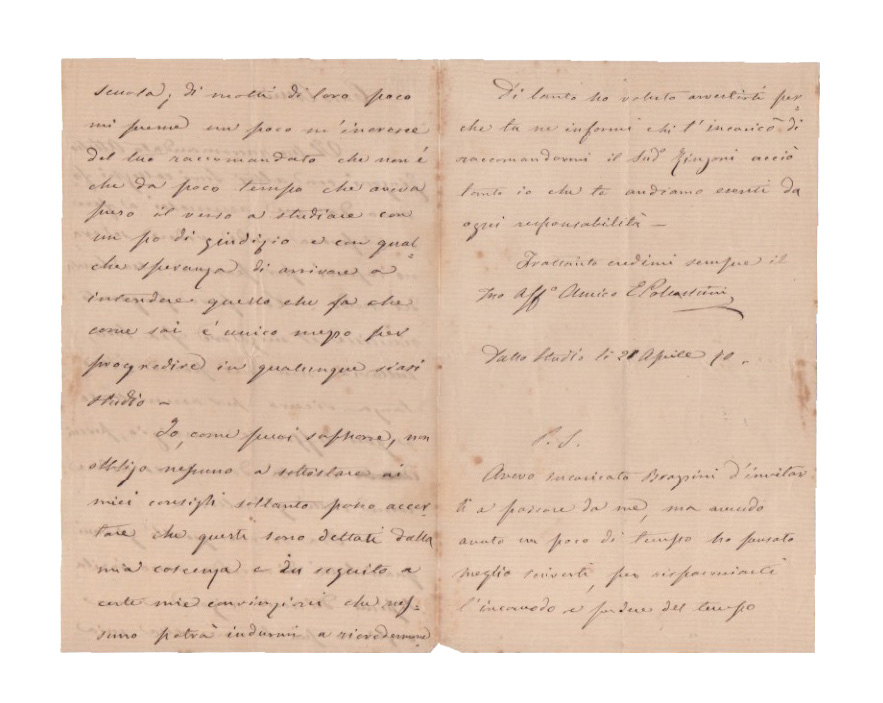 scuola, di molti di loro poco
mi preme un poco m'incresce
del tuo raccomandato che non è
che da poco tempo che aveva
preso il verso a studiare con
un po di giudizio e con qual=
che speranza di arrivare a
intendere quello che fa che
come sai è unico mezzo per
progredire in qualunque siasi
studio –
Io, come puoi sapere, non
obbligo nessuno a sottostare ai
miei consigli soltanto posso accer=
tare che questi sono dettati dalla
mia coscenza e in seguito a
certe mie convinzioni che nes=
suno potrà indurmi a ricredermene
Di tanto ho voluto avvertirti per=
che tu ne informi chi t'incaricò di
raccomandarmi il Sudº Zingoni acciò
tanto io che te andiamo esenti da
ogni responsabilità –
Frattanto credimi sempre il
tuo Affº Amico E Pollastrini
Dallo Studio li 28 Aprile 70.
P. S.
Avevo incaricato d'invitar=
ti a passare da me, ma avendo
avuto un poco di tempo ho pensato
meglio scriverti, per risparmiarti
l'incomodo e perdere del tempo